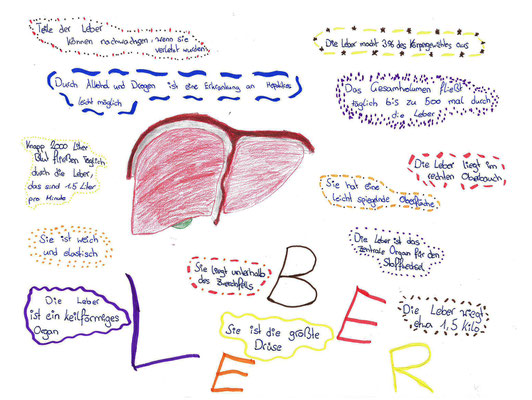 Teile der Leber
können nachwachsen, wenn sie
verletzt wurden
Die Leber macht 3% des Körpergewichtes aus
Durch Alkohol und Drogen ist eine Erkrankung an Hepatitis
leicht möglich
Das Gesamtvolumen fließt
täglich bis zu 500 mal durch
die Leber
Knapp 2000 Liter
Blut fließen täglich
durch die Leber,
das sind 1,5 Liter
pro Minute
Die Leber liegt im
rechten Oberbauch
Sie hat eine
leicht spiegelnde Oberfläche
Sie ist weich
und elastisch
Die Leber ist das
zentrale Organ für den
Stoffwechsel
Sie liegt unterhalb
des Zwerchfells
Die Leber
ist ein keilförmiges
Organ
Sie ist die größte
Drüse
Die Leber wiegt
etwa 1,5 Kilo
LEBER